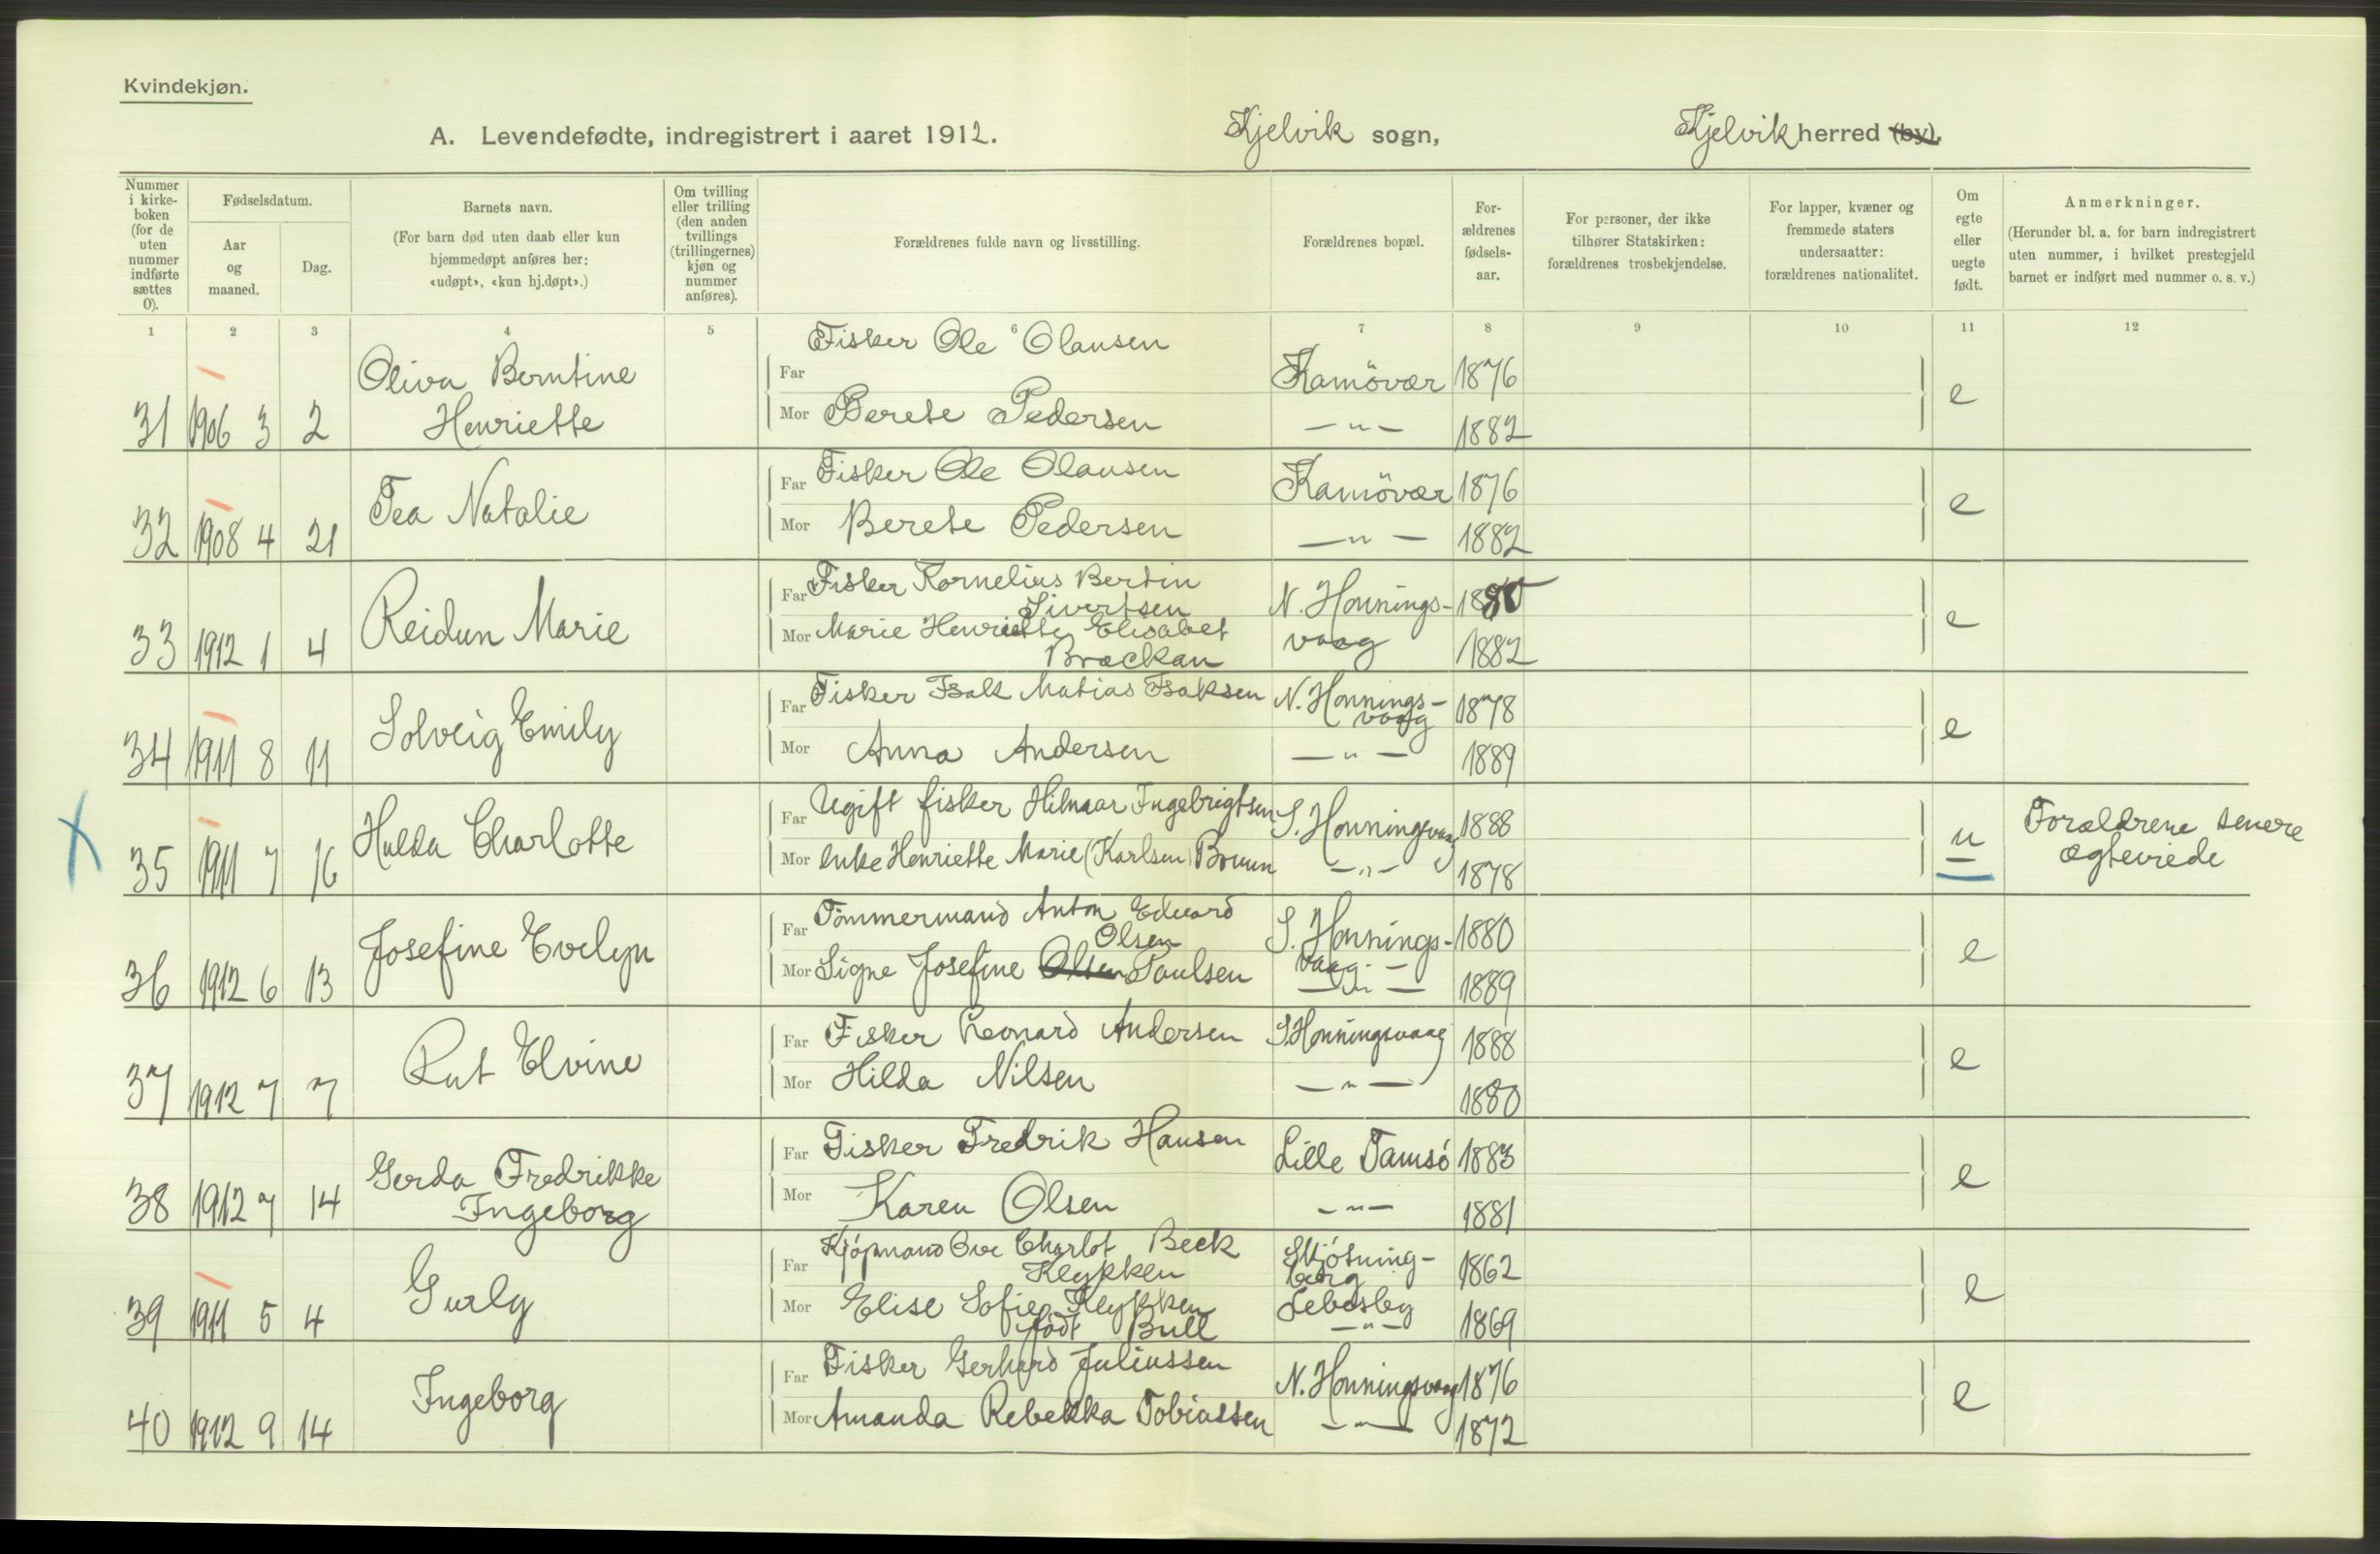 Kvindekjøn.
A. Levendefødte, indregistrert i aaret 1912. Kjelvik sogn, Kjelvik herred (by).
Nummer i kirkeboken (for de uten nummer indførte sættes 0).
Fødselsdatum.
Aar og maaned.
Dag.
Barnets navn.
(For barn død uten daab eller kun hjemmedøpt anføres her: «udøpt», «kun hj.døpt».)
Om tvilling eller trilling (den anden tvillings (trillingernes) kjøn og nummer anføres).
Forældrenes fulde navn og livsstilling.
Forældrenes bopæl.
Forældrenes fødselsaar.
For personer, der ikke tilhører Statskirken: forældrenes trosbekjendelse.
For lapper, kvæner og fremmede staters undersaatter: forældrenes nationalitet.
Om egte eller uegte født.
Anmerkninger.
(Herunder bl. a. for barn indregistrert uten nummer, i hvilket prestegjeld barnet er indført med nummer o. s. v.)
1 2 3 4 5 6 7 8 9 10 11 12
31 1906 3 2 Oliva Berntine Henriette
Far Fisker Ole Olausen Kamövær 1876 e
Mor Berete Pedersen —"— 1882
32 1908 4 21 Tea Natalie
Far Fisker Ole Olausen Kamövær 1876 e
Mor Berete Pedersen —"— 1882
33 1912 1 4 Reidun Marie
Far Fisker Kornelius Bertin Sivertsen N. Honningsvaag 1880 e
Mor Marie Henriette Elisabet Brackan 1882
34 1911 8 11 Solveig Emily
Far Fisker Isak Matias Isaksen N. Honningsvaag 1878 e
Mor Anna Andersen —"— 1889
X 35 1911 7 16 Hulda Charlotte
Far Ugift fisker Hilmar Ingebrigtsen S. Honningsvaag 1888 u Forældrene senere ægteviede
Mor enke Henriette Marie (Karlsen) Bruun —"— 1878
36 1912 6 13 Josefine Evelyn
Far Tömmermand Anton Edvard Olsen S. Honningsvaag 1880 e
Mor Signe Josefine Olsen Paulsen —"— 1889
37 1912 7 7 Rut Elvine
Far Fisker Leonard Andersen S. Honningsvaag 1888 e
Mor Hilda Nilsen —"— 1880
38 1912 7 14 Gerda Fredrikke Ingeborg
Far Fisker Fredrik Hansen Lille Tamsö 1883 e
Mor Karen Olsen —"— 1881
39 1911 5 4 Gurly
Far Kjöpmand Ove Charlot Beck Klykken Skjötningberg 1862 e
Mor Elise Sofie Klykken födt Bull Lebesby —"— 1869
40 1912 9 14 Ingeborg
Far Fisker Gerhard Juliussen N. Honningsvaag 1876 e
Mor Amanda Rebekka Tobiassen —"— 1872